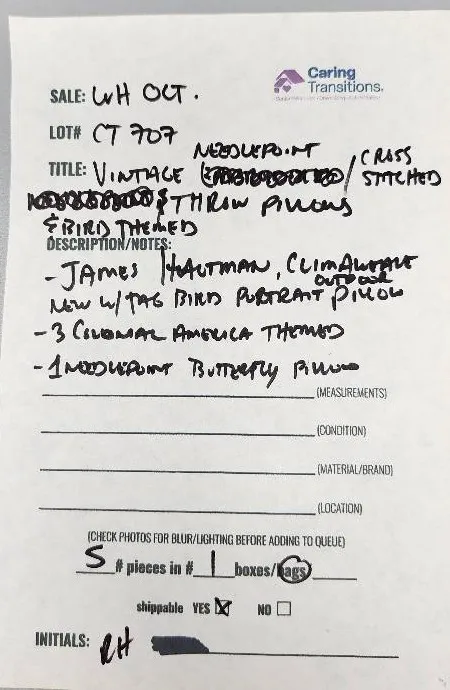 Caring
Transitions.
SALE: WH OCT.
LOT# CT 707
TITLE: VINTAGE NEEDLEPOINT / CROSS STITCHED
& THROW PILLOWS
& BIRD THEMED
DESCRIPTION/NOTES:
- JAMES HAUTMAN, CLIMAWEAVE
NEW W/ TAG BIRD PORTRAIT OUTDOOR PILLOW
- 3 COLONIAL AMERICA THEMED
- 1 NEEDLEPOINT BUTTERFLY PILLOW
(MEASUREMENTS)
(CONDITION)
(MATERIAL/BRAND)
(LOCATION)
(CHECK PHOTOS FOR BLUR/LIGHTING BEFORE ADDING TO QUEUE)
5 # pieces in # 1 boxes/bags
shippable YES NO
INITIALS: RH